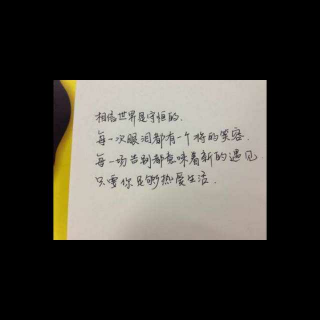 相信世界是守恒的.
每一次眼泪都有一个将的笑容.
每一场告别都意味着新的遇见.
只要你足够热爱生活.